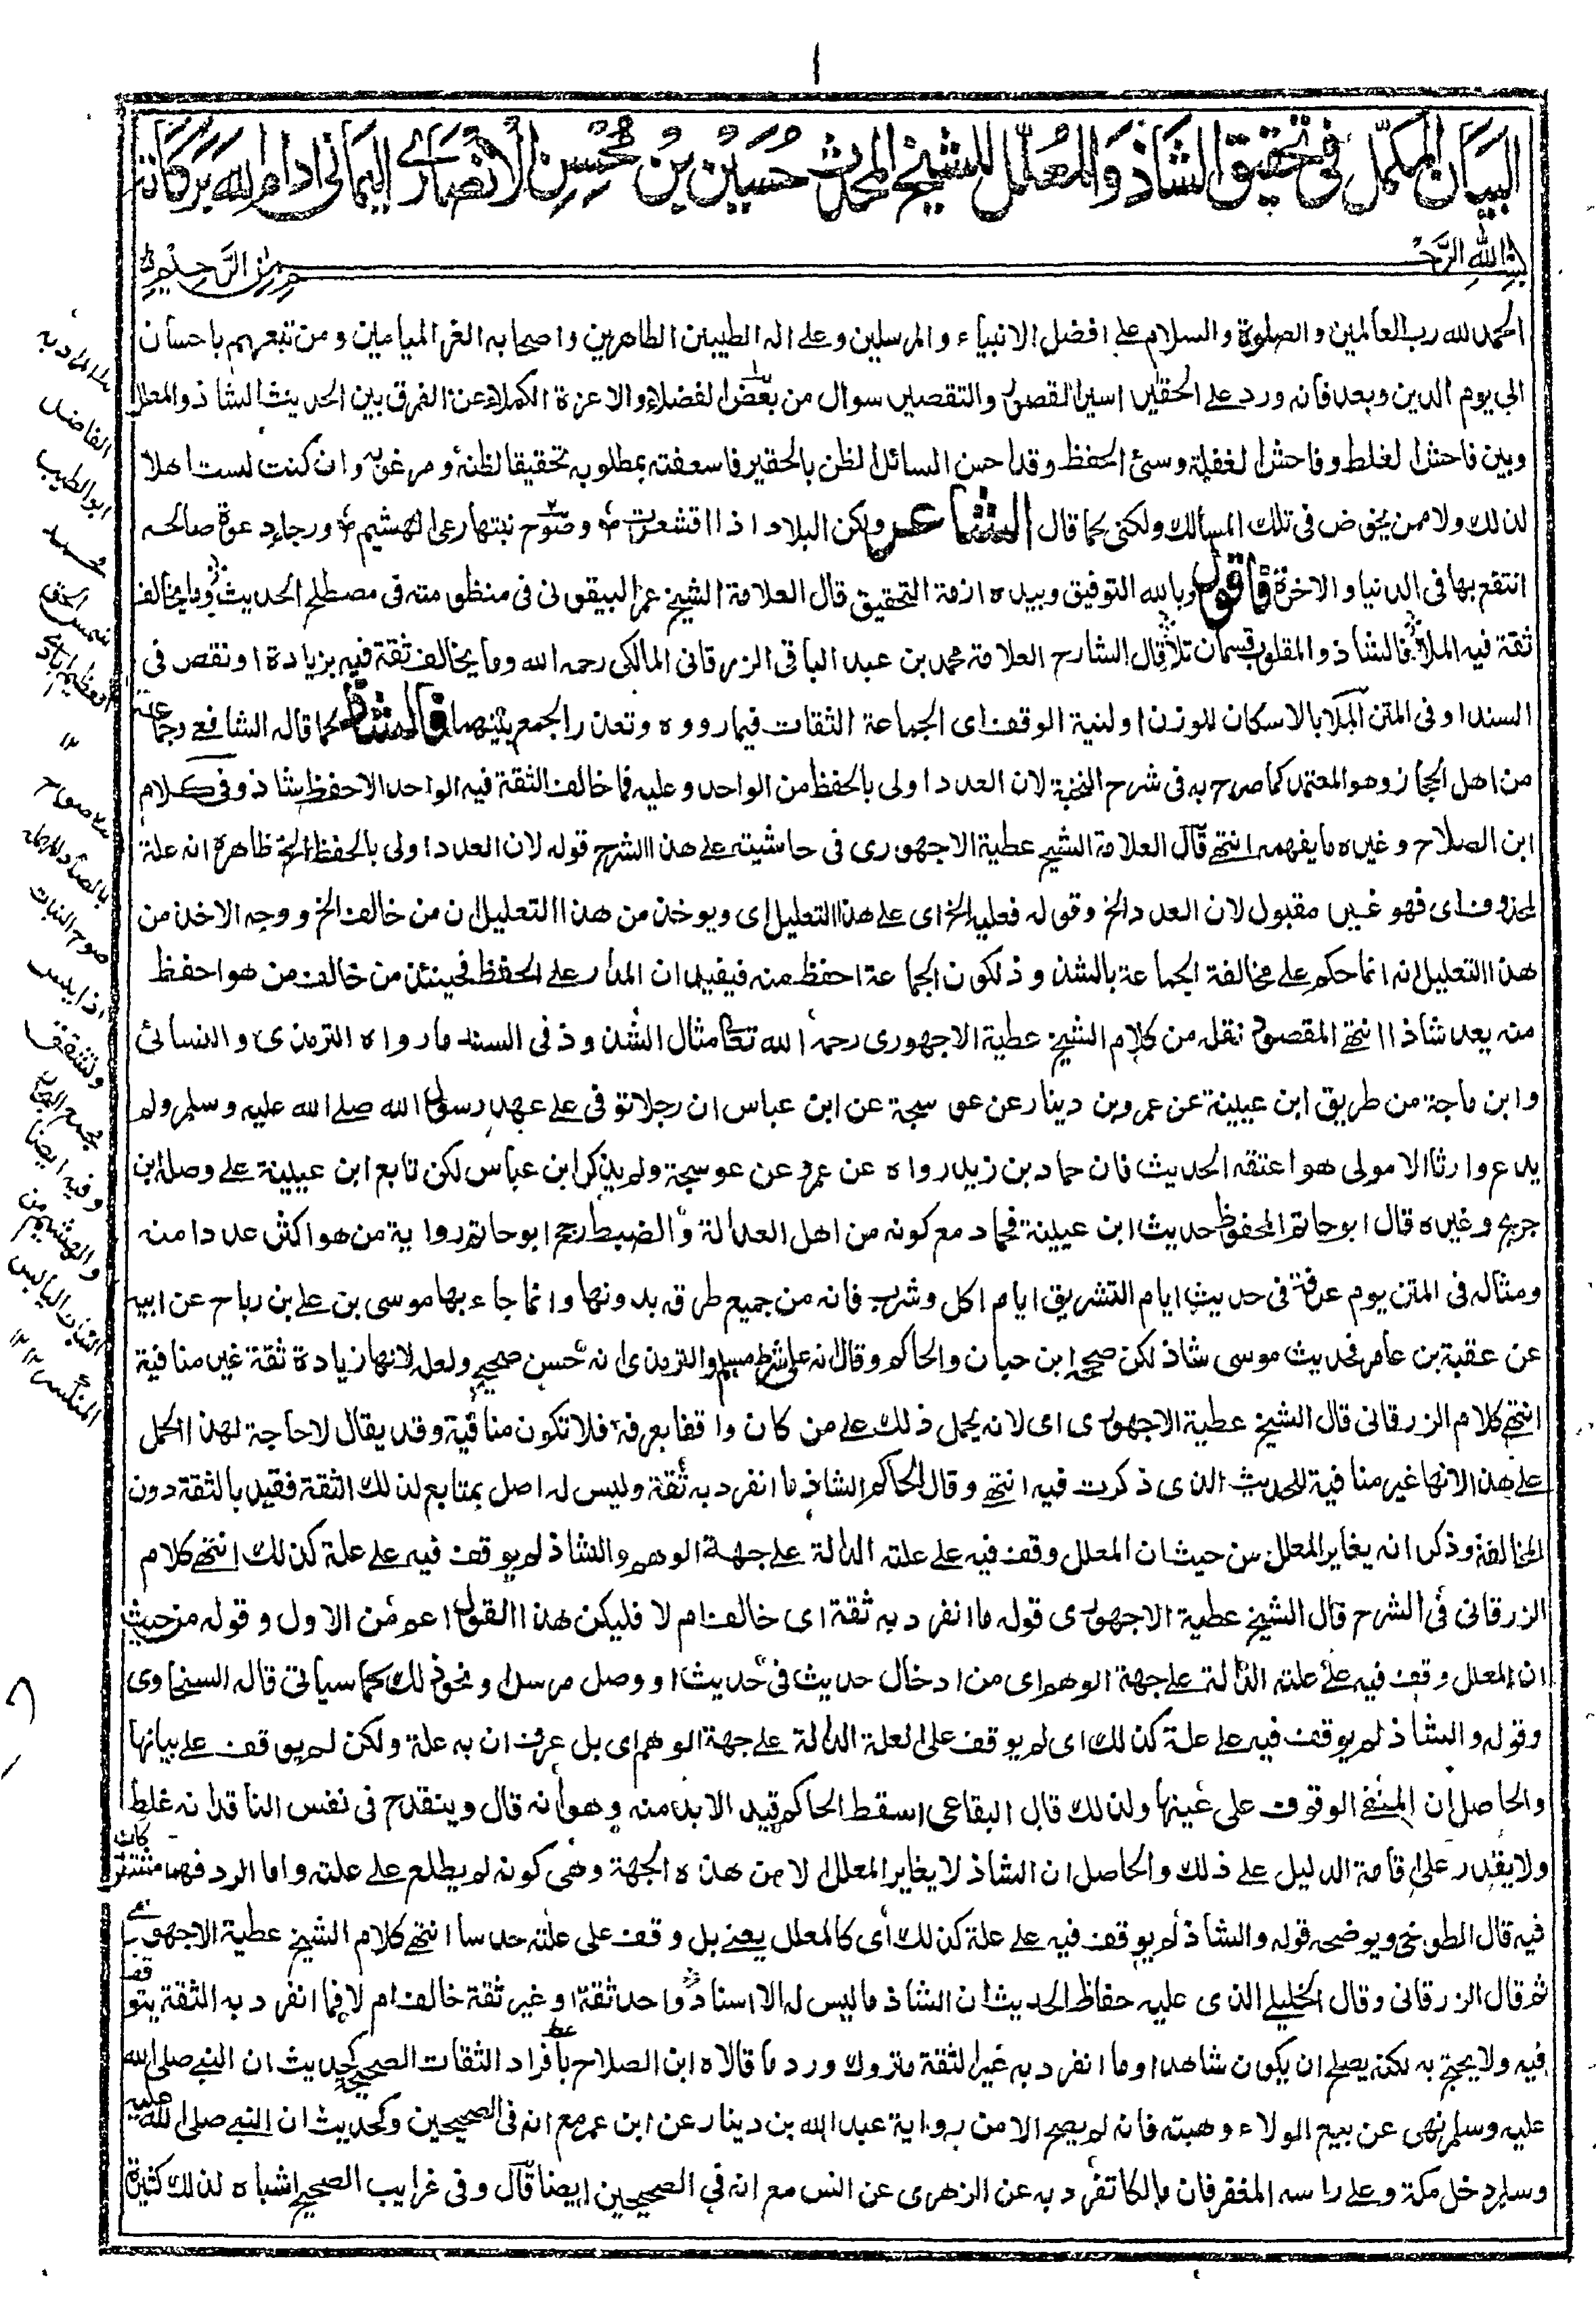 ١
البيان المكمل في تحقيق الشاذ والمعلل للشيخ المحدث حسين بن محسن الانصاري اليماني ادام الله بركاته
بسم الله الرحمن الرحيم
الحمد لله رب العالمين والصلوة والسلام على افضل الانبياء والمرسلين وعلى اله الطيبين الطاهرين واصحابه الغر الميامين ومن تبعهم باحسان
الى يوم الدين وبعد فانه ورد على الحقير اسير القصور والتقصير سوال من بعض الفضلاء والاعزة الكملاء عن الفرق بين الحديث الشاذ والمعلل
وبين فاحش الغلط وفاحش الغفلة وسئ الحفظ وقد احسن السائل الظن بالحقير فاسعفته بمطلوبه تحقيقا لظنه ومرغوبه وان كنت لست اهلا
لذلك ولا ممن يخوض في تلك المسالك ولكني كما قال الشاعر ولكن البلاد اذا اقشعرت ۞ وصوح نبتها رعى الهشيم ۞ ورجاء دعوة صالحه
انتفع بها في الدنيا والاخرة فاقول وبالله التوفيق وبيده ازمة التحقيق قال العلامة الشيخ عمر البيقوني في منظومته في مصطلح الحديث وما يخالف
ثقة فيه الملا فالشاذ والمقلوب قسمان تلا قال الشارح العلامة محمد بن عبد الباقي الزرقاني المالكي رحمه الله وما يخالف ثقة فيه بزيادة او نقص في
السند او في المتن الملا بالاسكان للوزن او لنية الوقف اى الجماعة الثقات فيما رووه وتعذر الجمع بينهما فالشاذ كما قاله الشافعي وجماعة
من اهل الحجاز وهو المعتمد كما صرح به في شرح النخبة لان العدد اولى بالحفظ من الواحد وعليه فما خالف الثقة فيه الواحد الاحفظ شاذ وفي كلام
ابن الصلاح وغيره ما يفهمه انتهى قال العلامة الشيخ عطية الاجهورى فى حاشيته على هذا الشرح قوله لان العدد اولى بالحفظ الخ ظاهره انه علة
لمحذوف اى فهو غير مقبول لان العدد الخ وقوله فعليه الخ اى على هذا التعليل اى ويوخذ من هذا التعليل ان من خالف الخ ووجه الاخذ من
هذا التعليل انه انما حكم على مخالفة الجماعة بالشذوذ لكون الجماعة احفظ منه فيفيد ان المدار على الحفظ فحينئذ من خالف من هو احفظ
منه يعد شاذا انتهى المقصود نقله من كلام الشيخ عطية الاجهورى رحمه الله تعالى مثال الشذوذ فى السند ما رواه الترمذى والنسائى
وابن ماجة من طريق ابن عيينة عن عمرو بن دينار عن عوسجة عن ابن عباس ان رجلا توفى على عهد رسول الله صلى الله عليه وسلم ولم
يدع وارثا الا مولى هو اعتقه الحديث فان حماد بن زيد رواه عن عمرو عن عوسجة ولم يذكر ابن عباس لكن تابع ابن عيينة على وصله ابن
جريج وغيره قال ابو حاتم المحفوظ حديث ابن عيينة فحماد مع كونه من اهل العدالة والضبط رجح ابو حاتم رواية من هو اكثر عددا منه
ومثاله فى المتن يوم عرفة فى حديث ايام التشريق ايام اكل وشرب فانه من جميع طرقه بدونها وانما جاء بها موسى بن على بن رباح عن ابيه
عن عقبة بن عامر فحديث موسى شاذ لكن صححه ابن حبان والحاكم وقال انه على شرط مسلم والترمذى انه حسن صحيح ولعل لانها زيادة ثقة غير منافية
انتهى كلام الزرقانى قال الشيخ عطية الاجهورى اى لانه يحمل ذلك على من كان واقفا بعرفة فلا تكون منافية وقد يقال لا حاجة لهذا الحمل
على هذا لانها غير منافية للحديث الذى ذكرت فيه انتهى وقال الحاكم الشاذ ما انفرد به ثقة وليس له اصل بمتابع لذلك الثقة فقيد بالثقة دون
المخالفة وذكر انه يغاير المعلل من حيث ان المعلل وقف فيه على علته الدالة على جهة الوهم والشاذ لم يوقف فيه على علة كذلك انتهى كلام
الزرقانى فى الشرح قال الشيخ عطية الاجهورى قوله ما انفرد به ثقة اى خالف ام لا فليكن هذا القول اعم من الاول وقوله من حيث
ان المعلل وقف فيه على علته الدالة على جهة الوهم اى من ادخال حديث فى حديث او وصل مرسل ونحو ذلك كما سياتى قاله السخاوى
وقوله والشاذ لم يوقف فيه على علة كذلك اى لم يوقف على العلة الدالة على جهة الوهم اى بل عرف ان به علة ولكن لم يوقف على بيانها
والحاصل ان المنفى الوقوف على عينها ولذلك قال البقاعى اسقط الحاكم قيدا لابد منه وهو انه قال وينقدح فى نفس الناقد انه غلط
ولا يقدر على اقامة الدليل على ذلك والحاصل ان الشاذ لا يغاير المعلل الا من هذه الجهة وهى كونه لم يطلع على علته واما الرد فهما مشتركان
فيه قال الطوخى ويوضحه قوله والشاذ لم يوقف فيه على علة كذلك اى كالمعلل يعنى بل وقف على علته حدسا انتهى كلام الشيخ عطية الاجهورى
ثم قال الزرقانى وقال الخليلى الذى عليه حفاظ الحديث ان الشاذ ما ليس له الا اسناد واحد ثقة او غير ثقة خالف ام لا فما انفرد به الثقة يتوقف
فيه ولا يحتج به لكنه يصلح ان يكون شاهدا وما انفرد به غير الثقة متروك ورد ما قالاه ابن الصلاح بافراد الثقات الصحيحة كحديث ان النبى صلى الله
عليه وسلم نهى عن بيع الولاء وهبته فانه لم يصح الا من رواية عبد الله بن دينار عن ابن عمر مع انه فى الصحيحين وكحديث ان النبى صلى الله عليه
وسلم دخل مكة وعلى راسه المغفر فان مالكا تفرد به عن الزهرى عن انس مع انه فى الصحيحين ايضا قال وفى غرايب الصحيح اشباه لذلك كثيرة
الفاضل
ابو الطيب
محمد
شمس الحق
العظيم ابادى
١٢
صوح النبات
اذا يبس
وتشقق
مجمع البحار
وفيه ايضا
والهشيم من
النبات اليابس
المتكسر ١٢